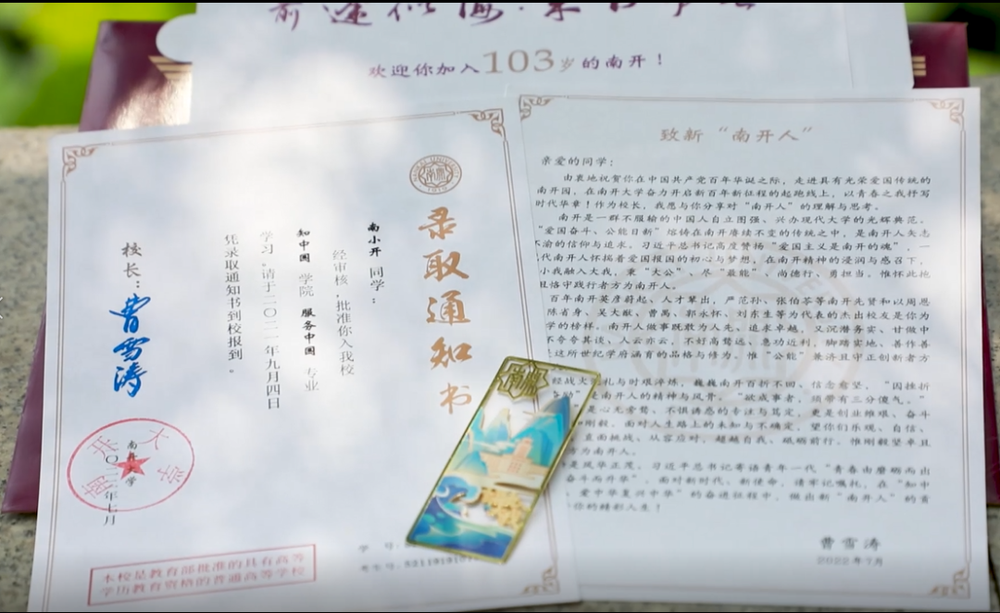 欢迎你加入103岁的南开！
录取通知书
南小开 同学：
经审核，批准你入我校
知中国 学院 服务中国 专业
学习。请于二〇二一年九月四日
凭录取通知书到校报到。
校长：
曹雪涛
本校是教育部批准的具有高等
学历教育资格的普通高等学校
学 号：
考生号：
致新“南开人”
亲爱的同学：
由衷地祝贺你在中国共产党百年华诞之际，走进具有光荣爱国传统的
南开园，在南开大学奋力开启新百年新征程的起跑线上，以青春之我抒写
时代华章！作为校长，我愿与你分享对“南开人”的理解与思考。
南开是一群不服输的中国人自立图强、兴办现代大学的光辉典范。
“爱国奋斗、公能日新”熔铸在南开赓续不变的传统之中，是南开人矢志
不渝的信仰与追求。习近平总书记高度赞扬“爱国主义是南开的魂”，一
代南开人怀揣着爱国报国的初心与梦想，在南开精神的浸润与感召下，
小我融入大我，秉“大公”，尽“最能”，尚德行、勇担当。惟怀此抱
且恪守践行者方为南开人。
百年南开英彦蔚起、人才辈出，严范孙、张伯苓等南开先贤和以周恩
陈省身、吴大猷、曹禺、郭永怀、刘东生等为代表的杰出校友是你为
学的榜样。南开人做事既敢为人先、追求卓越，又沉潜务实、甘做中
不夸夸其谈、人云亦云，不好高骛远、急功近利，脚踏实地、善作善
是这所世纪学府涵育的品格与修为。惟“公能”兼济且守正创新者方
经战火洗礼与时艰淬炼，巍巍南开百折不回、信念愈坚，“因挫折
励”是南开人的精神与风骨。“欲成事者，须带有三分傻气。”
是心无旁骛、不惧诱惑的专注与笃定，更是创业维艰、奋斗
和刚毅。面对人生路上的未知与不确定，望你们乐观、自信、
直面挑战、从容应对，超越自我、砥砺前行。惟刚毅坚卓且
方为南开人。
是风华正茂，习近平总书记寄语青年一代“青春由磨砺而出
奋斗而升华”。面对新时代、新使命，请牢记嘱托，在“知中
爱中华复兴中华”的奋进征程中，做出新“南开人”的贡
你的精彩人生！
曹雪涛
2022年7月